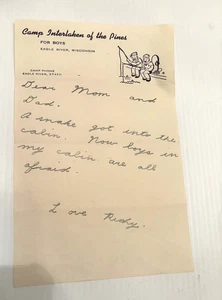 Camp Interlaken of the Pines
FOR BOYS
EAGLE RIVER, WISCONSIN
CAMP PHONE
EAGLE RIVER,
Dear Mom and
Dad.
A snake got into the
cabin. Now boys in
my cabin are all
afraid.
Love Ricky.